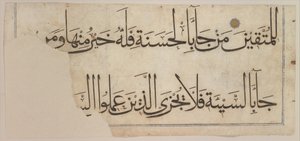 للمتقين من جاء بالحسنة فله خير منها ومن
جاء بالسيئة فلا يجزى الذين عملوا